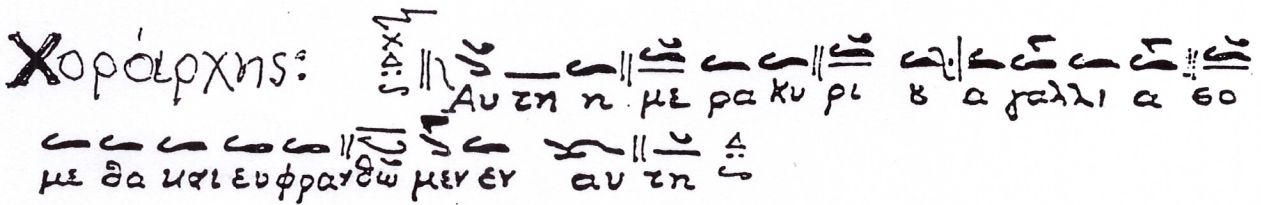 Χοράρχης: Αυ τη η με ρα Κυ ρι ȣ α γαλλι α σο
με θα και ευφρανθῶ μεν εν αυ τη